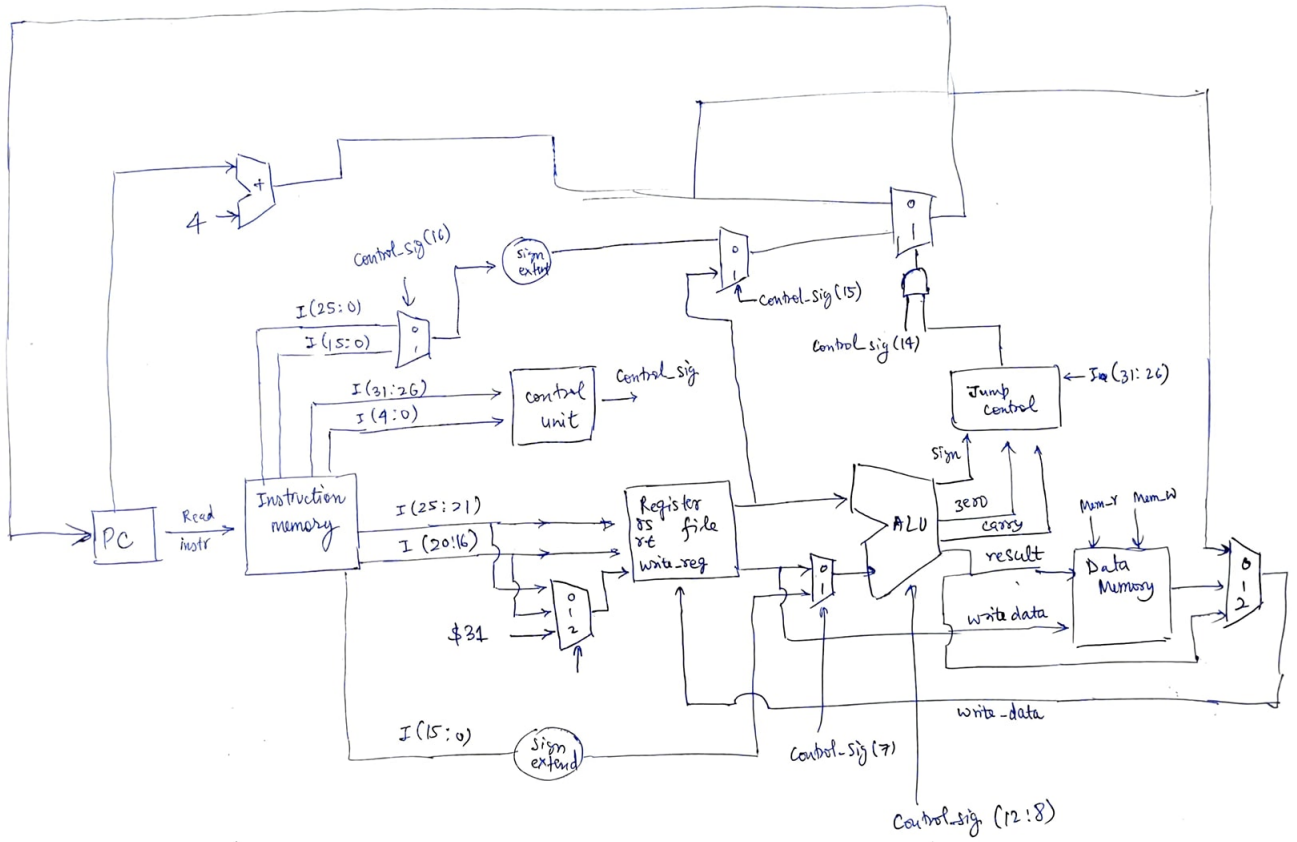 +
4
Control_sig(16)
sign
extend
0
1
0
1
Control_sig(15)
I(25:0)
I(15:0)
0
1
Control_sig(14)
I(31:26)
I(4:0)
Control
unit
Control_sig
Jump
Control
I(31:26)
Sign
zero
carry
PC
Read
instr
Instruction
memory
I(25:21)
I(20:16)
Register
rs file
rt
write_reg
0
1
2
$31
0
1
ALU
result
write data
Mem_r
Mem_w
Data
Memory
0
1
2
write_data
I(15:0)
Sign
extend
Control_Sig(7)
Control_sig (12:8)